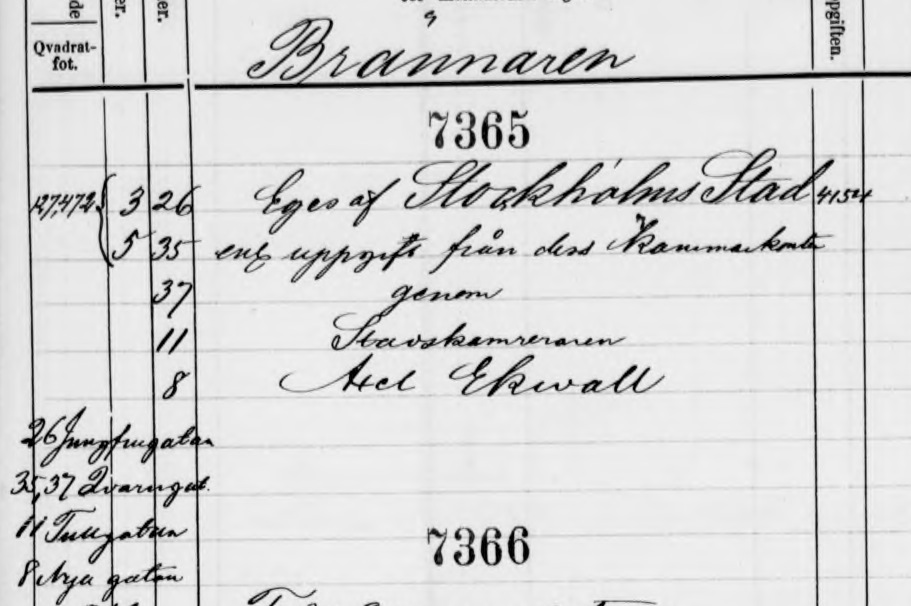 de
er.
er.
ppgiften.
Qvadrat-
fot.
Brännaren
7365
127,472 { 3 26 Eges af Stockholms Stad 4154
5 35 enl uppgift från dess Kammarkontor
37 genom
11 Stadskamreraren
8 Axel Ekwall
26 Jungfrugatan
35, 37 Qvarngat.
11 Tullgatan
7366
8 Nya gatan